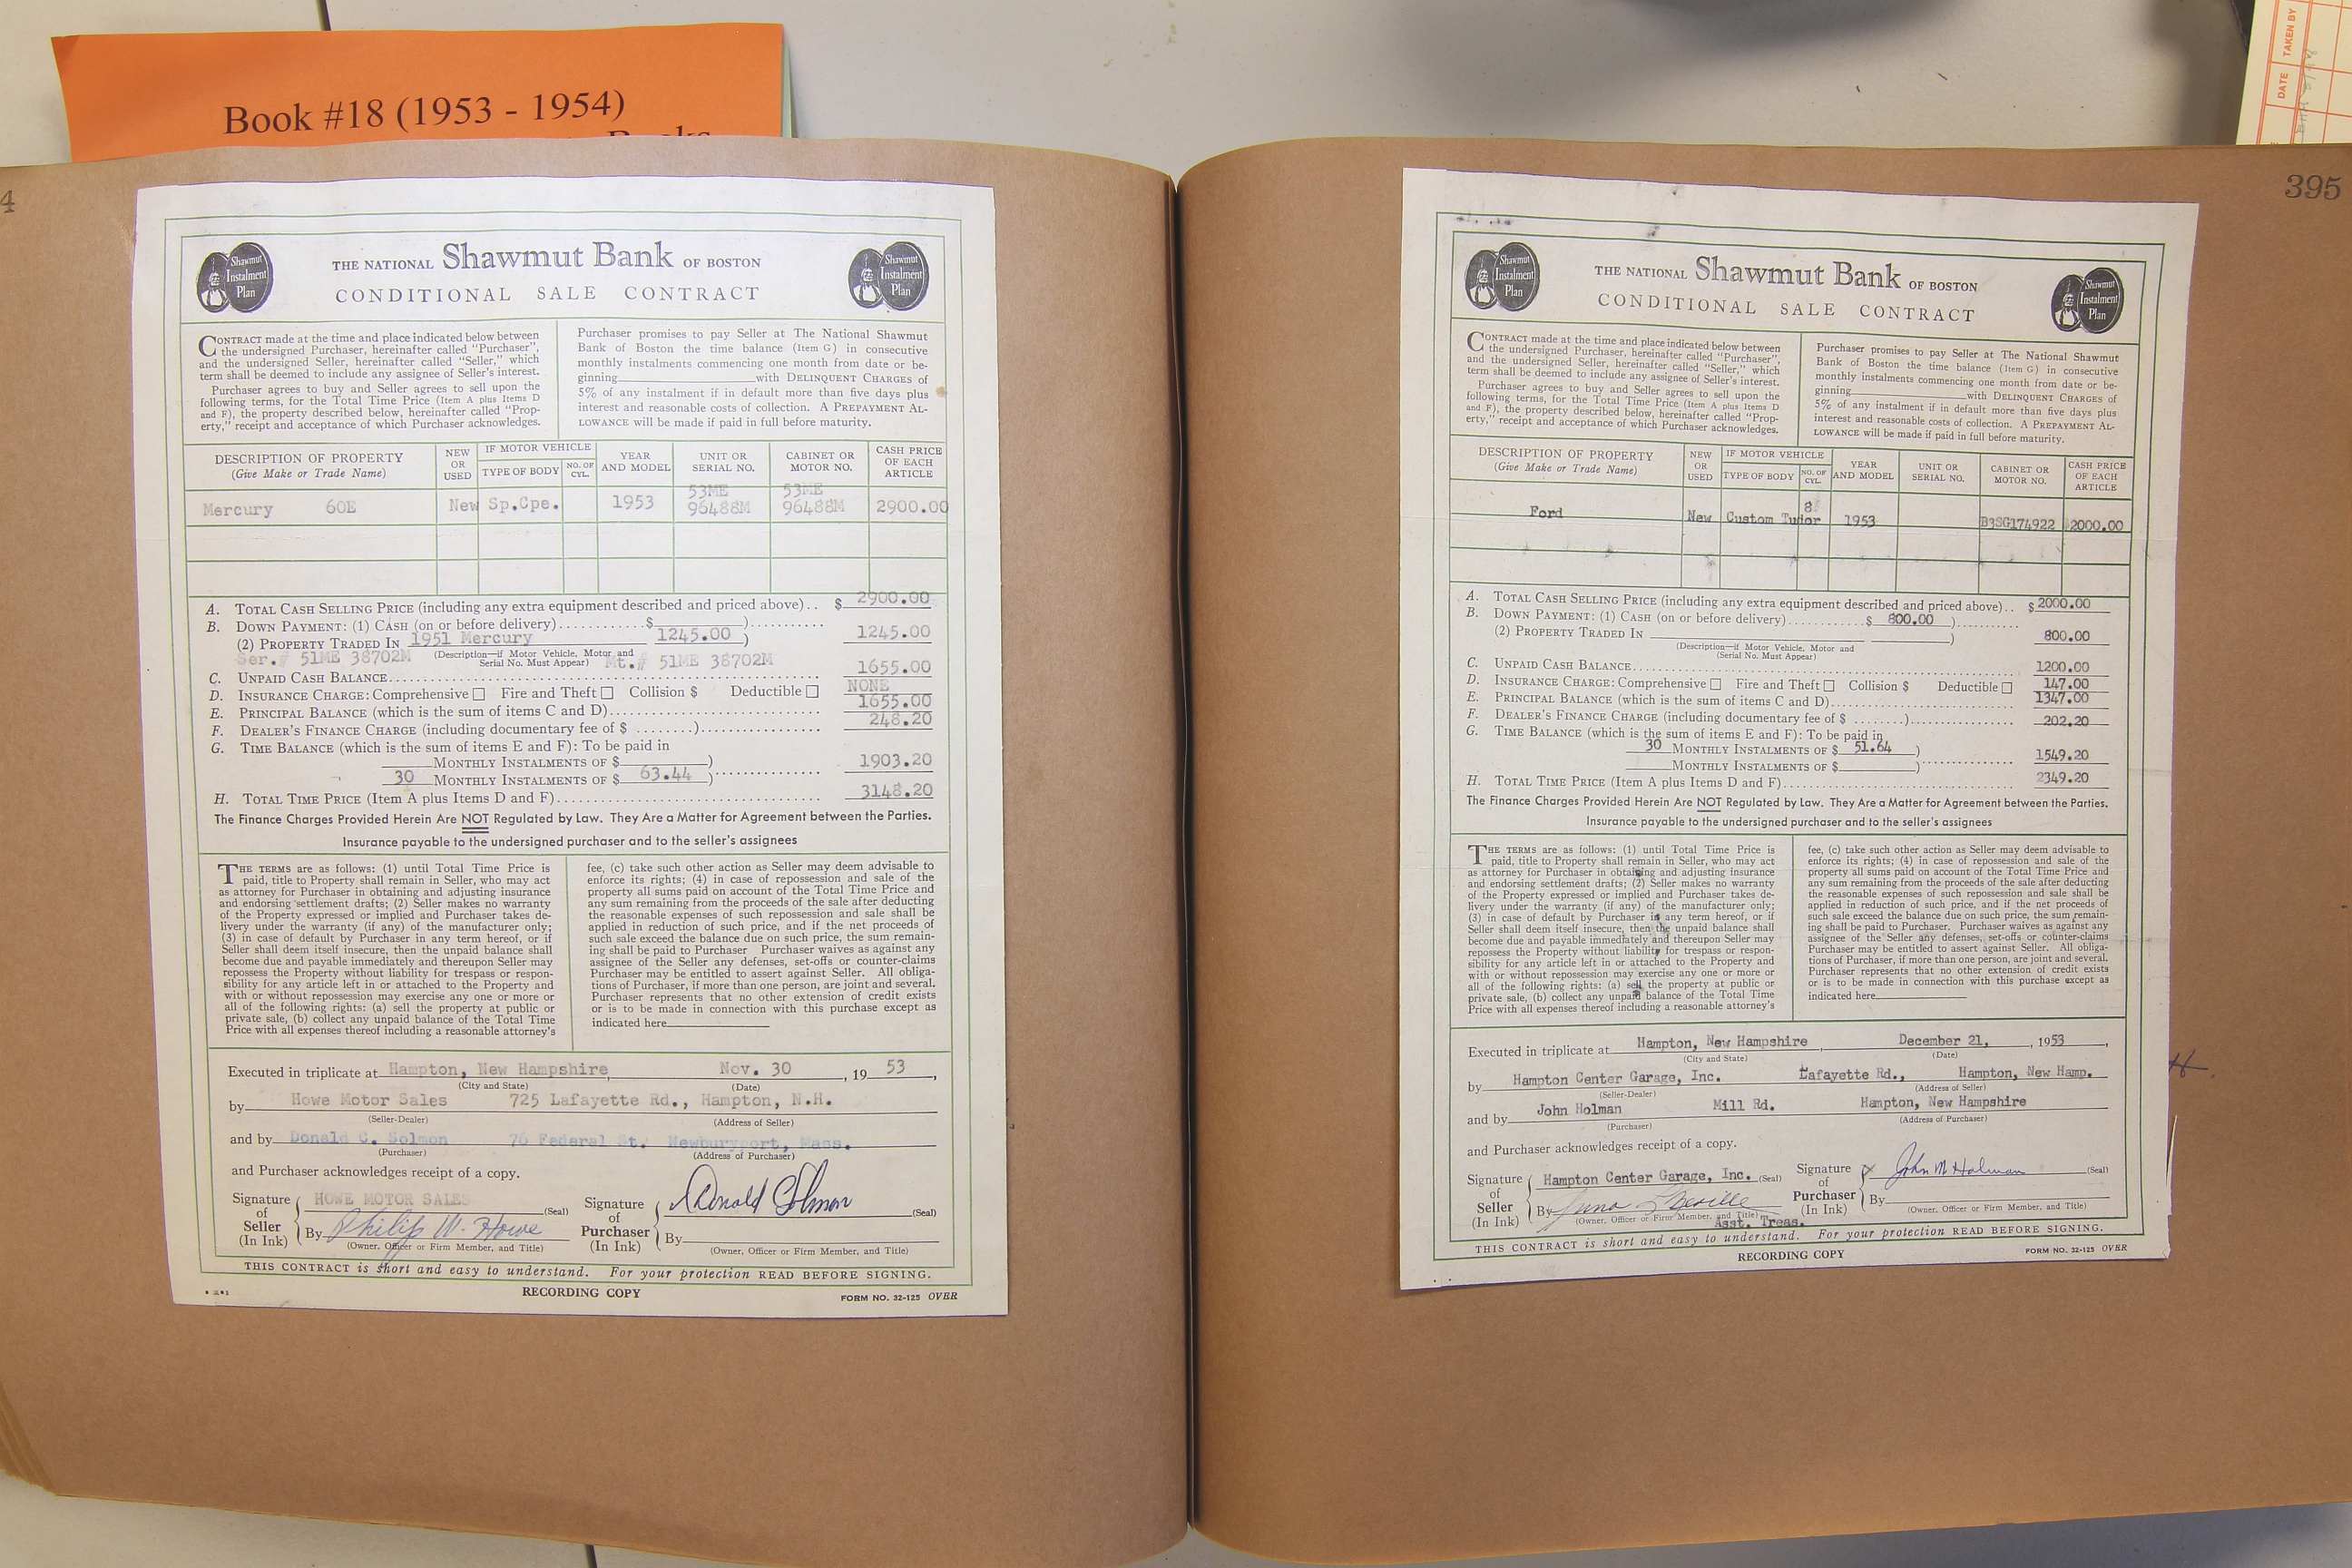 Book #18 (1953 - 1954)
DATE TAKEN BY
4
Shawmut
Instalment
Plan
THE NATIONAL Shawmut Bank OF BOSTON
CONDITIONAL SALE CONTRACT
Shawmut
Instalment
Plan
CONTRACT made at the time and place indicated below between
the undersigned Purchaser, hereinafter called "Purchaser",
and the undersigned Seller, hereinafter called "Seller," which
term shall be deemed to include any assignee of Seller's interest.
Purchaser agrees to buy and Seller agrees to sell upon the
following terms, for the Total Time Price (Item A plus Items D
and F), the property described below, hereinafter called "Prop-
erty," receipt and acceptance of which Purchaser acknowledges.
Purchaser promises to pay Seller at The National Shawmut
Bank of Boston the time balance (Item G) in consecutive
monthly instalments commencing one month from date or be-
ginning with DELINQUENT CHARGES of
5% of any instalment if in default more than five days plus
interest and reasonable costs of collection. A PREPAYMENT AL-
LOWANCE will be made if paid in full before maturity.
DESCRIPTION OF PROPERTY
(Give Make or Trade Name)
NEW
OR
USED
IF MOTOR VEHICLE
TYPE OF BODY
NO. OF
CYL.
YEAR
AND MODEL
UNIT OR
SERIAL NO.
CABINET OR
MOTOR NO.
CASH PRICE
OF EACH
ARTICLE
53ME 53ME
Mercury 60E New Sp.Cpe. 1953 96488M 96488M 2900.00
A. TOTAL CASH SELLING PRICE (including any extra equipment described and priced above).. $ 2900.00
B. DOWN PAYMENT: (1) CASH (on or before delivery)...........$ )..........
(2) PROPERTY TRADED IN 1951 Mercury 1245.00 ) 1245.00
Ser.# 51ME 38702M (Description—if Motor Vehicle, Motor and Mt.# 51ME 38702M
Serial No. Must Appear)
C. UNPAID CASH BALANCE.......... 1655.00
D. INSURANCE CHARGE: Comprehensive □ Fire and Theft □ Collision $ Deductible □ NONE
E. PRINCIPAL BALANCE (which is the sum of items C and D).......... 1655.00
F. DEALER'S FINANCE CHARGE (including documentary fee of $ ........).......... 248.20
G. TIME BALANCE (which is the sum of items E and F): To be paid in
MONTHLY INSTALMENTS OF $ )
1903.20
30 MONTHLY INSTALMENTS OF $ 63.44 )..........
H. TOTAL TIME PRICE (Item A plus Items D and F).......... 3148.20
The Finance Charges Provided Herein Are NOT Regulated by Law. They Are a Matter for Agreement between the Parties.
Insurance payable to the undersigned purchaser and to the seller's assignees
THE TERMS are as follows: (1) until Total Time Price is
paid, title to Property shall remain in Seller, who may act
as attorney for Purchaser in obtaining and adjusting insurance
and endorsing settlement drafts; (2) Seller makes no warranty
of the Property expressed or implied and Purchaser takes de-
livery under the warranty (if any) of the manufacturer only;
(3) in case of default by Purchaser in any term hereof, or if
Seller shall deem itself insecure, then the unpaid balance shall
become due and payable immediately and thereupon Seller may
repossess the Property without liability for trespass or respon-
sibility for any article left in or attached to the Property and
with or without repossession may exercise any one or more or
all of the following rights: (a) sell the property at public or
private sale, (b) collect any unpaid balance of the Total Time
Price with all expenses thereof including a reasonable attorney's
fee, (c) take such other action as Seller may deem advisable to
enforce its rights; (4) in case of repossession and sale of the
property all sums paid on account of the Total Time Price and
any sum remaining from the proceeds of the sale after deducting
the reasonable expenses of such repossession and sale shall be
applied in reduction of such price, and if the net proceeds of
such sale exceed the balance due on such price, the sum remain-
ing shall be paid to Purchaser Purchaser waives as against any
assignee of the Seller any defenses, set-offs or counter-claims
Purchaser may be entitled to assert against Seller. All obliga-
tions of Purchaser, if more than one person, are joint and several.
Purchaser represents that no other extension of credit exists
or is to be made in connection with this purchase except as
indicated here
Executed in triplicate at Hampton, New Hampshire, Nov. 30, 19 53,
(City and State) (Date)
by Howe Motor Sales 725 Lafayette Rd., Hampton, N.H.
(Seller-Dealer) (Address of Seller)
and by Donald C. Solmon 76 Federal St. Newburyport, Mass.
(Purchaser) (Address of Purchaser)
and Purchaser acknowledges receipt of a copy.
Signature of Seller (In Ink) HOWE MOTOR SALES (Seal)
By Philip W. Howe
(Owner, Officer or Firm Member, and Title)
Signature of Purchaser (In Ink) Donald Solmon (Seal)
By
(Owner, Officer or Firm Member, and Title)
THIS CONTRACT is short and easy to understand. For your protection READ BEFORE SIGNING.
RECORDING COPY
FORM NO. 32-125 OVER
395
Shawmut
Instalment
Plan
THE NATIONAL Shawmut Bank OF BOSTON
CONDITIONAL SALE CONTRACT
Shawmut
Instalment
Plan
CONTRACT made at the time and place indicated below between
the undersigned Purchaser, hereinafter called "Purchaser",
and the undersigned Seller, hereinafter called "Seller," which
term shall be deemed to include any assignee of Seller's interest.
Purchaser agrees to buy and Seller agrees to sell upon the
following terms, for the Total Time Price (Item A plus Items D
and F), the property described below, hereinafter called "Prop-
erty," receipt and acceptance of which Purchaser acknowledges.
Purchaser promises to pay Seller at The National Shawmut
Bank of Boston the time balance (Item G) in consecutive
monthly instalments commencing one month from date or be-
ginning with DELINQUENT CHARGES of
5% of any instalment if in default more than five days plus
interest and reasonable costs of collection. A PREPAYMENT AL-
LOWANCE will be made if paid in full before maturity.
DESCRIPTION OF PROPERTY
(Give Make or Trade Name)
NEW
OR
USED
IF MOTOR VEHICLE
TYPE OF BODY
NO. OF
CYL.
YEAR
AND MODEL
UNIT OR
SERIAL NO.
CABINET OR
MOTOR NO.
CASH PRICE
OF EACH
ARTICLE
8
Ford New Custom Tudor 1953 B3SG174922 $2000.00
A. TOTAL CASH SELLING PRICE (including any extra equipment described and priced above).. $ 2000.00
B. DOWN PAYMENT: (1) CASH (on or before delivery)...........$ 800.00 )..........
(2) PROPERTY TRADED IN ) 800.00
(Description—if Motor Vehicle, Motor and
(Serial No. Must Appear)
C. UNPAID CASH BALANCE.......... 1200.00
D. INSURANCE CHARGE: Comprehensive □ Fire and Theft □ Collision $ Deductible □ 147.00
E. PRINCIPAL BALANCE (which is the sum of items C and D).......... 1347.00
F. DEALER'S FINANCE CHARGE (including documentary fee of $ ........).......... 202.20
G. TIME BALANCE (which is the sum of items E and F): To be paid in
30 MONTHLY INSTALMENTS OF $ 51.64 )
1549.20
MONTHLY INSTALMENTS OF $ )..........
H. TOTAL TIME PRICE (Item A plus Items D and F).......... 2349.20
The Finance Charges Provided Herein Are NOT Regulated by Law. They Are a Matter for Agreement between the Parties.
Insurance payable to the undersigned purchaser and to the seller's assignees
THE TERMS are as follows: (1) until Total Time Price is
paid, title to Property shall remain in Seller, who may act
as attorney for Purchaser in obtaining and adjusting insurance
and endorsing settlement drafts; (2) Seller makes no warranty
of the Property expressed or implied and Purchaser takes de-
livery under the warranty (if any) of the manufacturer only;
(3) in case of default by Purchaser in any term hereof, or if
Seller shall deem itself insecure, then the unpaid balance shall
become due and payable immediately and thereupon Seller may
repossess the Property without liability for trespass or respon-
sibility for any article left in or attached to the Property and
with or without repossession may exercise any one or more or
all of the following rights: (a) sell the property at public or
private sale, (b) collect any unpaid balance of the Total Time
Price with all expenses thereof including a reasonable attorney's
fee, (c) take such other action as Seller may deem advisable to
enforce its rights; (4) in case of repossession and sale of the
property all sums paid on account of the Total Time Price and
any sum remaining from the proceeds of the sale after deducting
the reasonable expenses of such repossession and sale shall be
applied in reduction of such price, and if the net proceeds of
such sale exceed the balance due on such price, the sum remain-
ing shall be paid to Purchaser. Purchaser waives as against any
assignee of the Seller any defenses, set-offs or counter-claims
Purchaser may be entitled to assert against Seller. All obliga-
tions of Purchaser, if more than one person, are joint and several.
Purchaser represents that no other extension of credit exists
or is to be made in connection with this purchase except as
indicated here
Executed in triplicate at Hampton, New Hampshire, December 21, , 1953,
(City and State) (Date)
by Hampton Center Garage, Inc. Lafayette Rd., Hampton, New Hamp.
(Seller-Dealer) (Address of Seller)
and by John Holman Mill Rd. Hampton, New Hampshire
(Purchaser) (Address of Purchaser)
and Purchaser acknowledges receipt of a copy.
Signature of Seller (In Ink) Hampton Center Garage, Inc. (Seal)
By
(Owner, Officer or Firm Member, and Title)
Asst. Treas.
Signature of Purchaser (In Ink) x John M Holman (Seal)
By
(Owner, Officer or Firm Member, and Title)
THIS CONTRACT is short and easy to understand. For your protection READ BEFORE SIGNING.
RECORDING COPY
FORM NO. 32-125 OVER